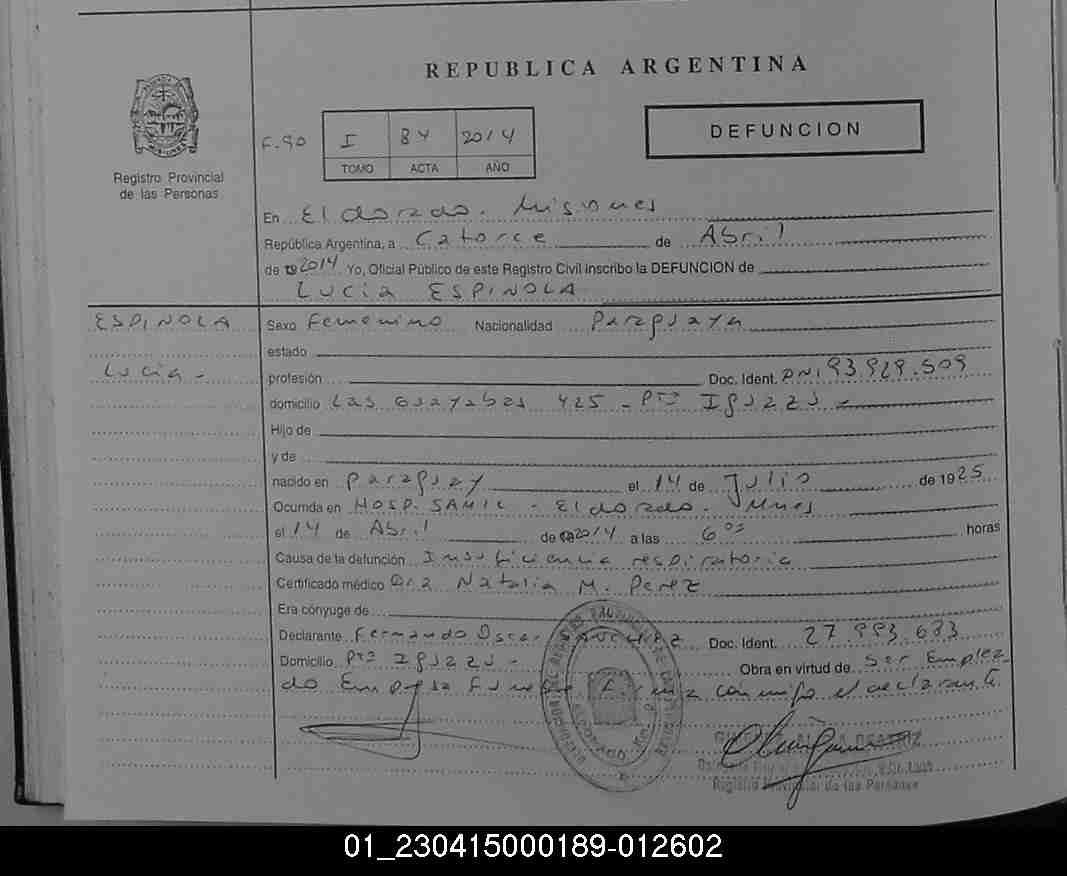 REPUBLICA ARGENTINA
DEFUNCION
F. 90 I 84 2014
TOMO ACTA AÑO
Registro Provincial
de las Personas
En Eldorado. Misiones
República Argentina, a Catorce de Abril
de 2014 Yo, Oficial Público de este Registro Civil inscribo la DEFUNCION de
Lucia ESPINOLA
ESPINOLA Sexo Femenino Nacionalidad Paraguaya
estado
Lucia - profesión Doc. Ident. DNI 93.929.509
domicilio Las Guayabas 425 - Pto Iguazu -
Hijo de
y de
nacido en Paraguay el 14 de Julio de 1925
Ocurrida en HOSP. SAMIC - Eldorado. Mnes
el 14 de Abril de 2014 a las 6 00 horas
Causa de la defunción Insuficiencia respiratoria
Certificado médico Dra Natalia M. Perez
Era cónyuge de
Declarante Fernando Oscar Doc. Ident. 27.993.633
Domicilio Pto Iguazu - Obra en virtud de Ser Emplea
do Empresa Firma conmigo el declarante
BEATRIZ
Registro Provincial de las Personas
01_230415000189-012602